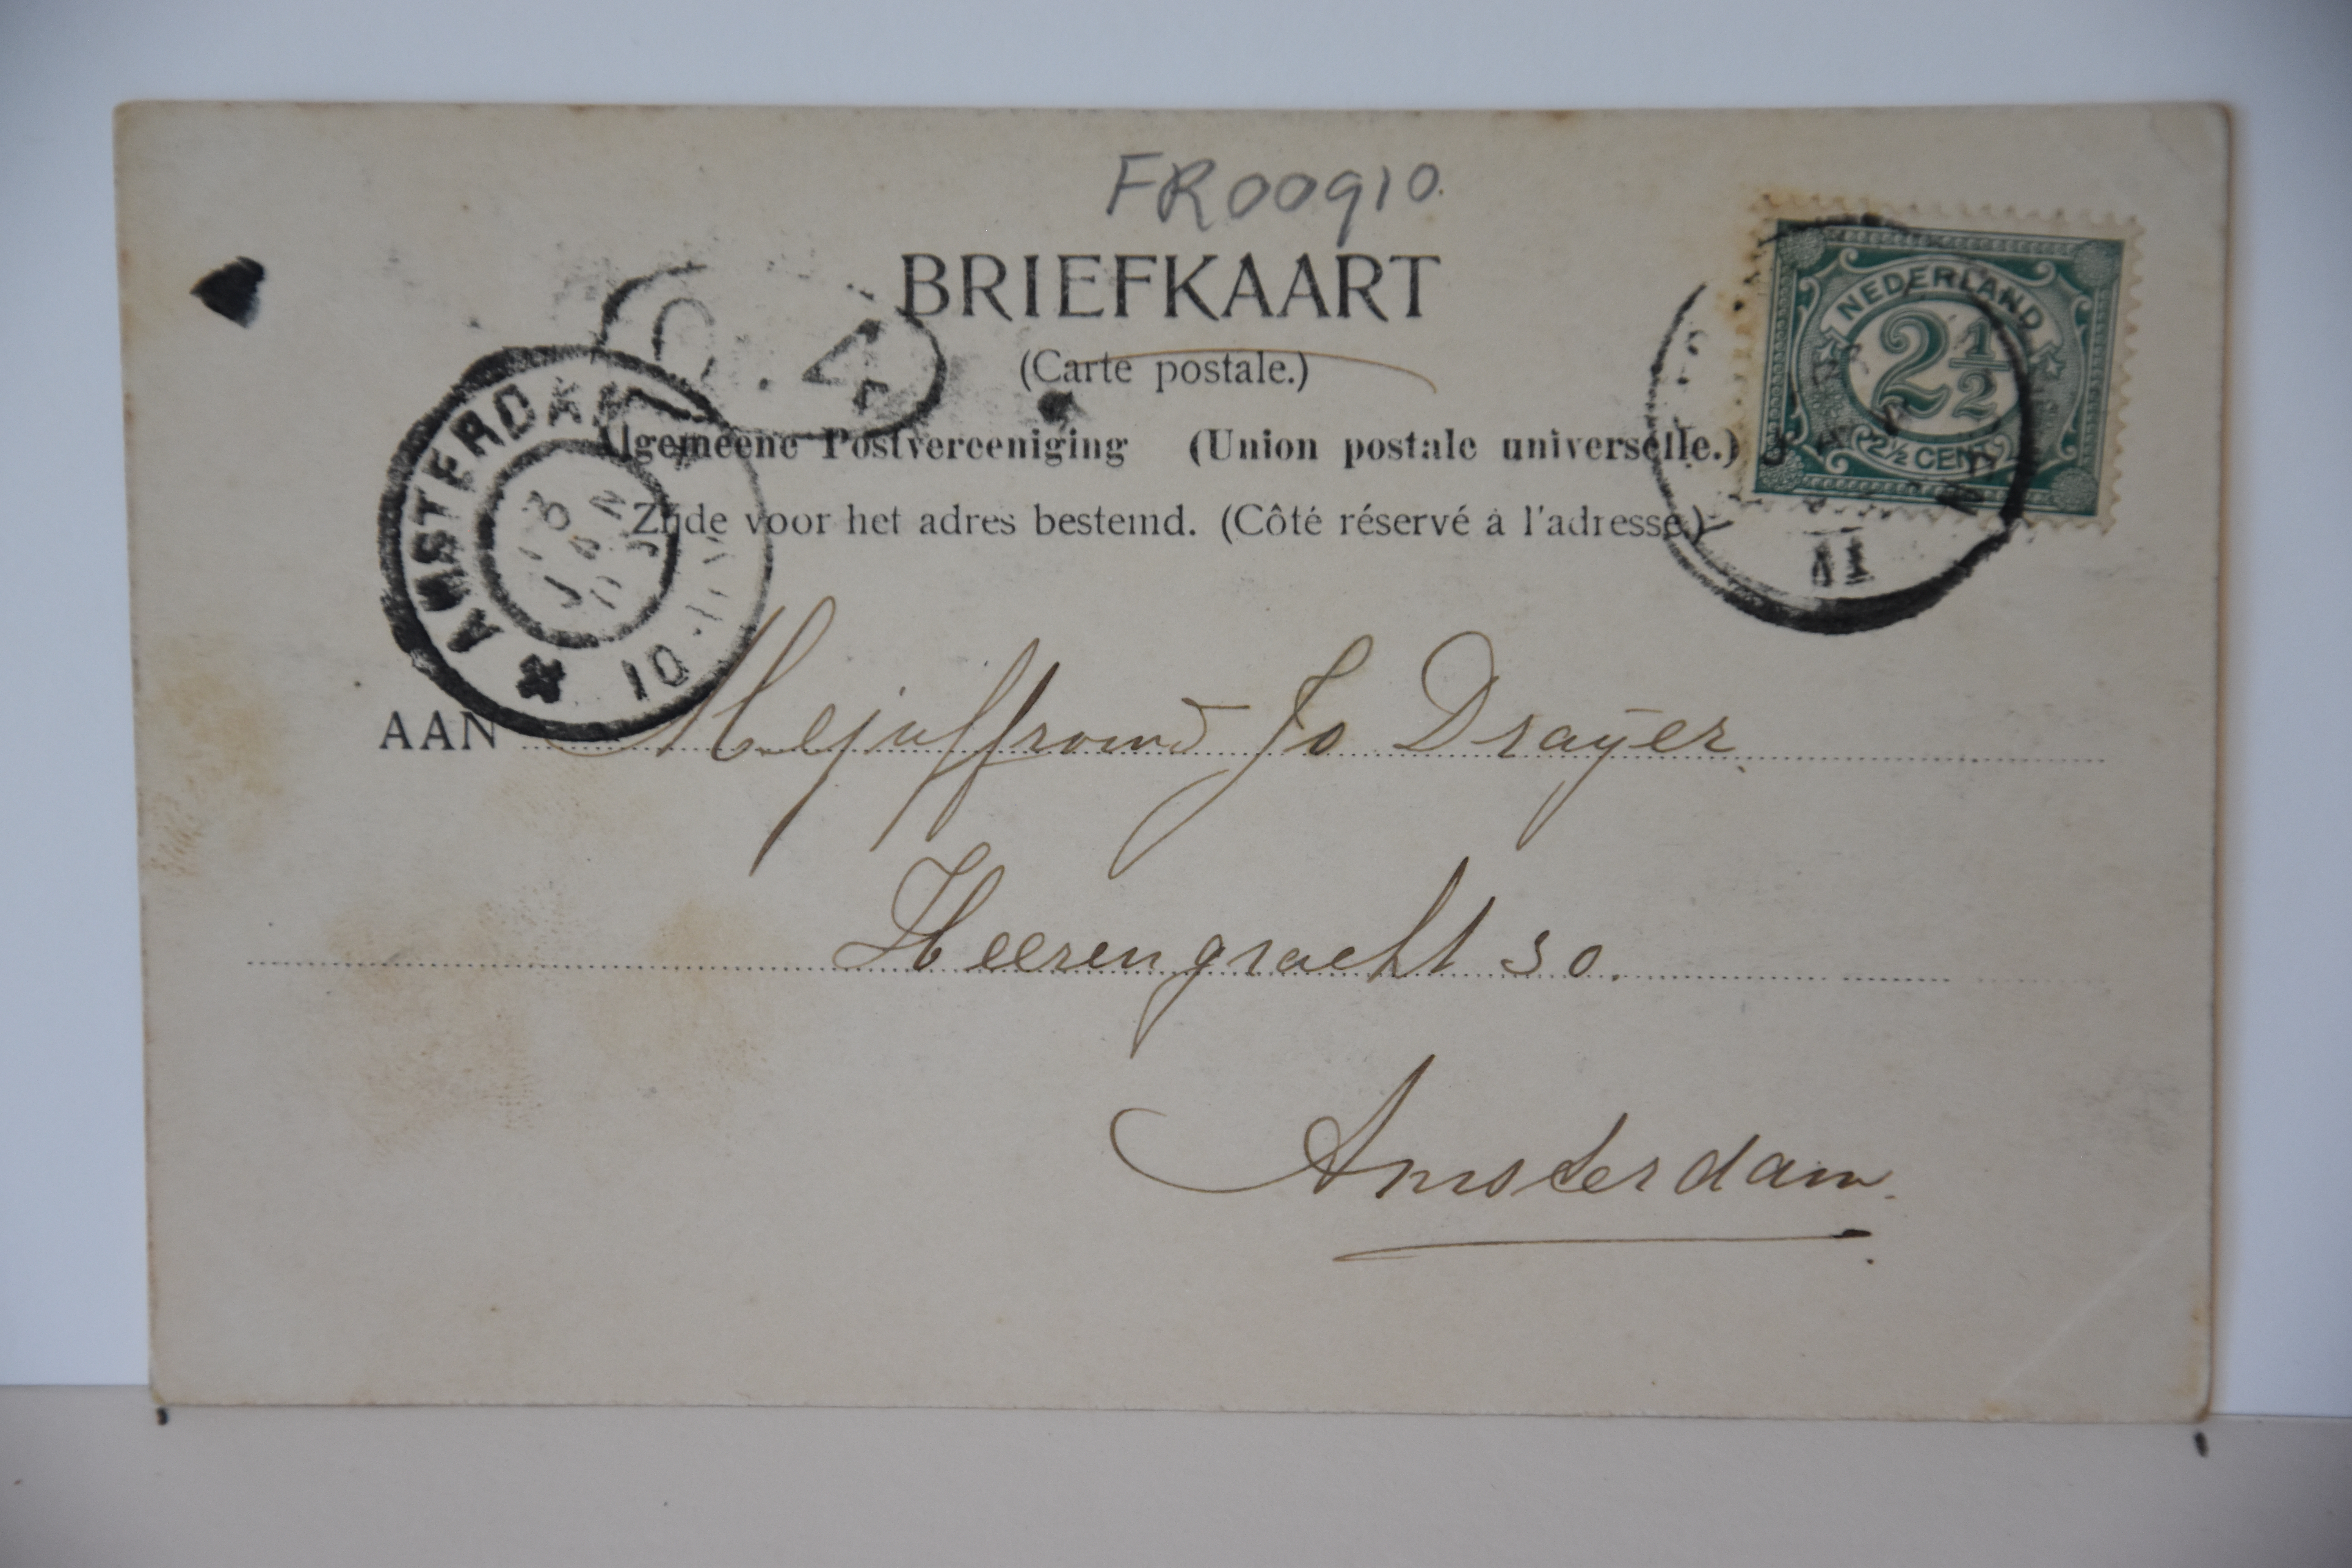 FR00910.
BRIEFKAART
(Carte postale.)
Algemeene Postvereeniging (Union postale universelle.)
Zijde voor het adres bestemd. (Côté réservé à l'adresse.)
NEDERLAND
2½
2½ CENT
AMSTERDAM
JAN
10-11V
11
AAN Mejuffrouw Jo Drayer
Heerengracht 30.
Amsterdam.